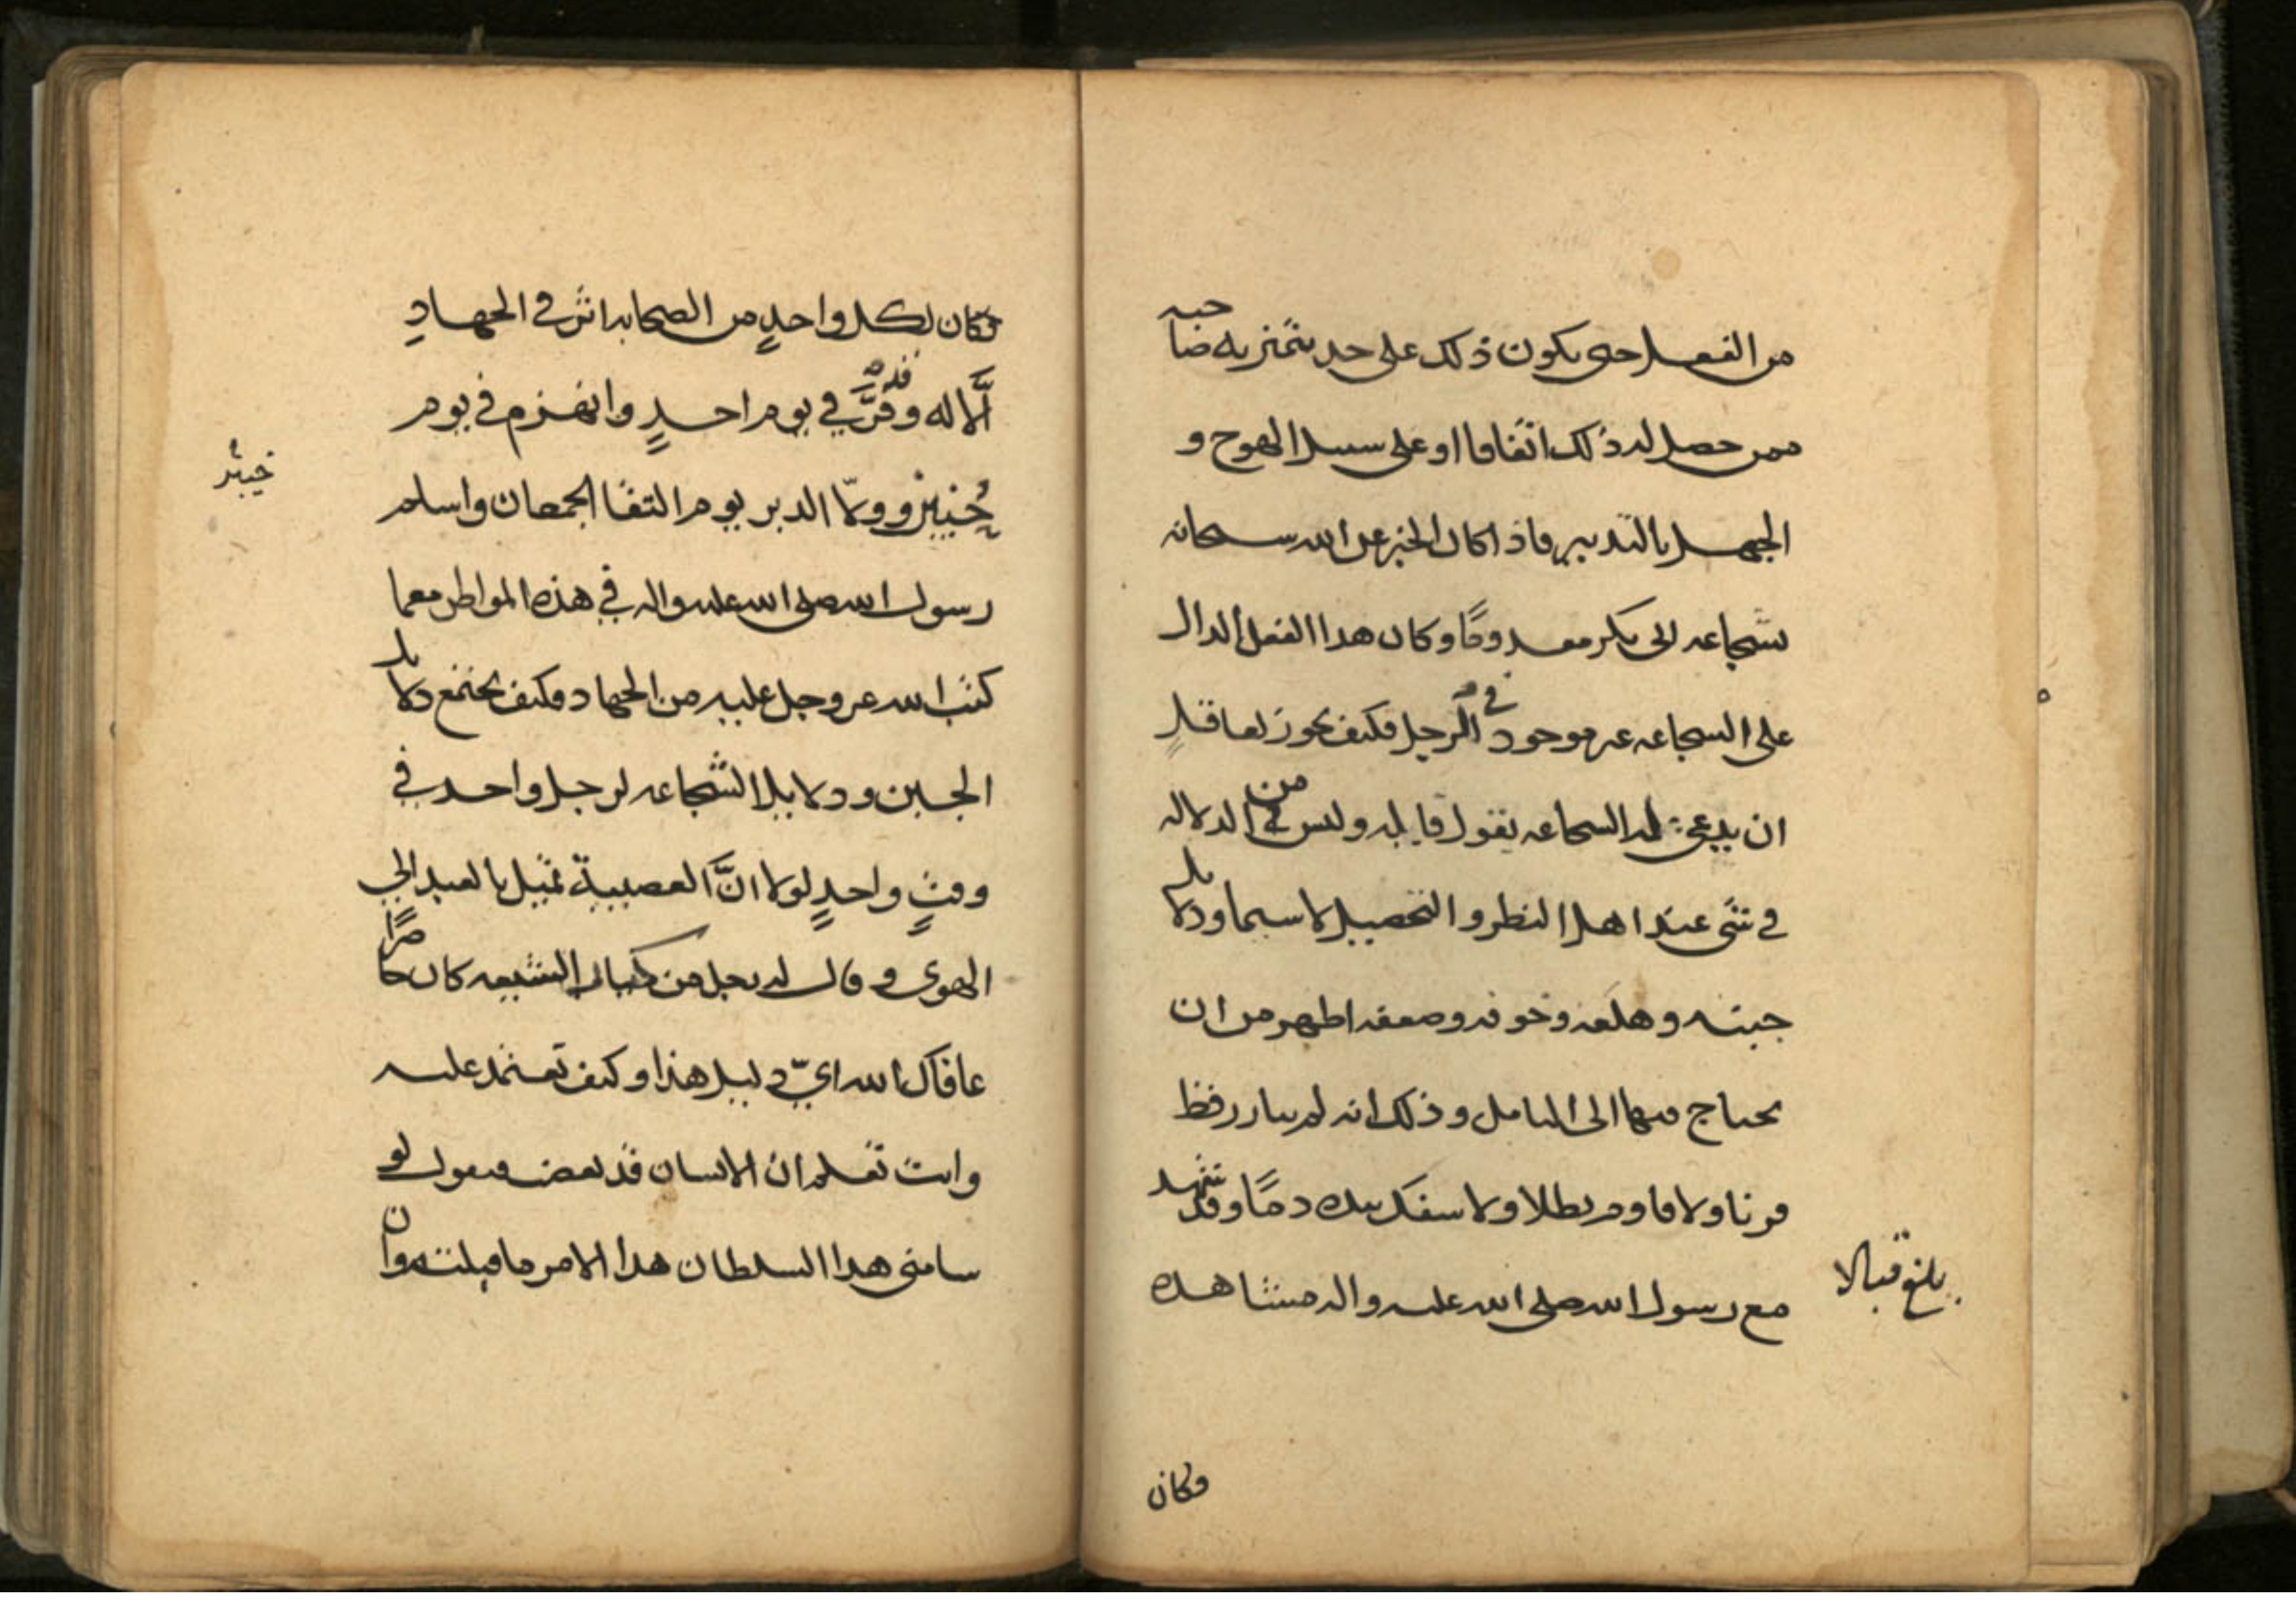 من الفعل حتى يكون ذلك على حد يتميز به صاحبه
ممن حصل له ذلك اتفاقا او على سبيل الهوج و
الجهل بالتدبير فاذا كان الخبر عن الله سبحانه
بشجاعة ابى بكر معدومًا وكان هذا الفعل الدال
على الشجاعة غير موجود في الرجل فكيف يجوز لعاقلٍ
ان يدعي له الشجاعة بقول قاله وليس من الدلالة
في شئ عند اهل النظر والتحصيل لا سيما ودلايل
جبنه وهلعه وخوفه وضعفه اظهر من ان
يحتاج فيها الى التامل وذلك انه لم يبارز قط
قرنا ولا قاوم بطلا ولا سفك بيده دمًا وقد شهد
مع رسول الله صلى الله عليه واله مشاهده
بلغ قبالا
فكان
فكان لكل واحدٍ من الصحابه اثر في الجهادِ
الَّا له وفرَّ في يوم احدٍ وانهزم في يوم
خيبر
حُنين وولّا الدبر يوم التقا الجمعان واسلم
رسول الله صلى الله عليه واله في هذه المواطن مع ما
كتب الله عز وجل عليه من الجهاد فكيف يجتمع دلايل
الجبن ودلايل الشجاعه لرجل واحد في
وقتٍ واحدٍ لولا انَّ العصبية تميل بالعبد الى
الهوى وقال له رجل من الشيعه كان حاضرًا
عافاك الله ايّ دليل هذا وكيف تعتمد عليه
وانت تعلم ان الانسان قد يغضب فيقول لو
سامني هذا السلطان هذا الامر ما قبلته وان